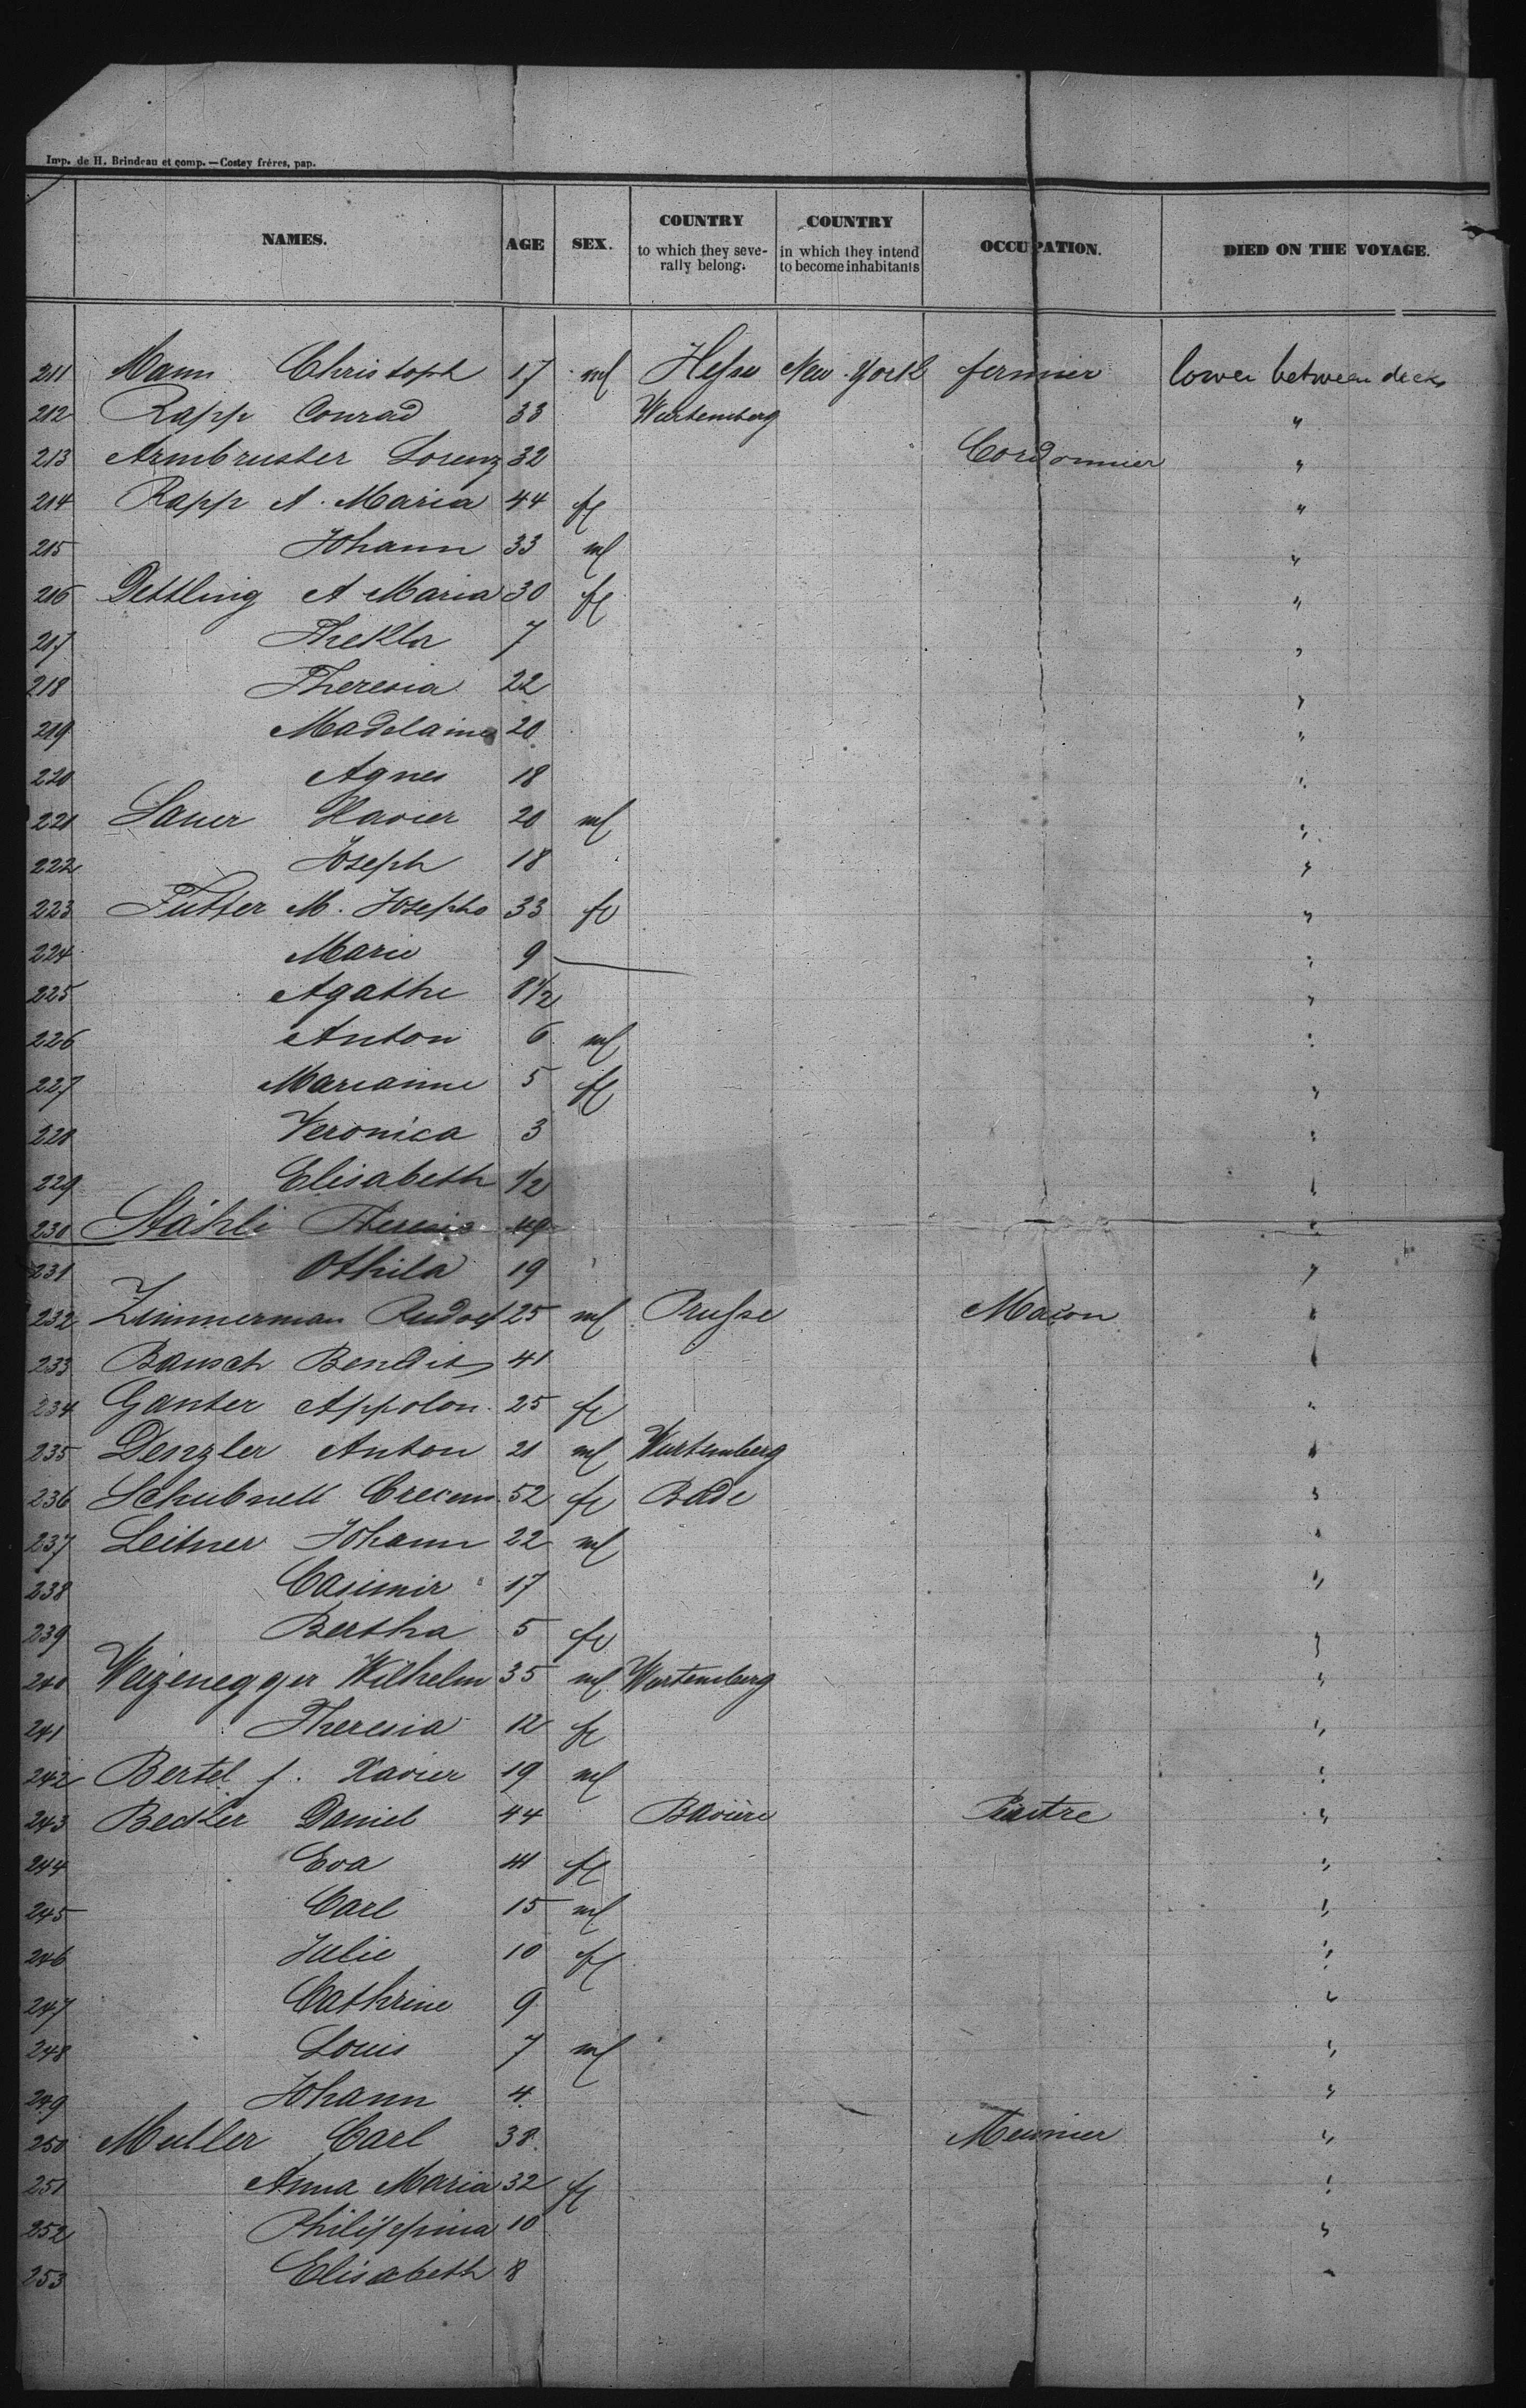 Imp. de H. Brindeau et comp. — Costey frères, pap.
NAMES. AGE SEX. COUNTRY to which they seve- rally belong. COUNTRY in which they intend to become inhabitants OCCUPATION. DIED ON THE VOYAGE.
211 Mann Christoph 17 ml Hesse New-York fermier lower between decks
212 Rapp Conrad 33 Wurtemberg "
213 Armbruster Lorenz 32 Cordonnier "
214 Rapp A. Maria 44 fl "
215 Johann 33 ml "
216 Dettling A Maria 30 fl "
217 Thekla 7 "
218 Theresia 22 "
219 Madelaine 20 "
220 Agnes 18 "
221 Lauer Xavier 20 ml "
222 Joseph 18 "
223 Futter M. Josepha 33 fl "
224 Marie 9 "
225 Agathe 8 1/2 "
226 Anton 6 ml "
227 Marianne 5 fl "
228 Veronica 3 "
229 Elisabeth 1/2 "
230 Stähli 49 "
231 Othila 19 "
232 Zimmerman Rudolf 25 ml Prusse Maçon "
233 Bausch Bendit 41 "
234 Ganter Appolon. 25 fl "
235 Denzler Anton 21 ml Wurtemberg "
236 Schubnell Crecun. 52 fl Bade "
237 Leitner Johann 22 ml "
238 Casimir 17 "
239 Bertha 5 fl "
240 Weizenegger Wilhelm 35 ml Wurtemberg "
241 Theresia 12 fl "
242 Bertel f. Xavier 19 ml "
243 Becker Daniel 44 Bavière "
244 Eva 41 fl "
245 Carl 15 ml "
246 Julie 10 fl "
247 Cathrine 9 "
248 Louis 7 ml "
249 Johann 4 "
250 Muller Carl 38 Meunier "
251 Anna Maria 32 fl "
252 Philippina 10 "
253 Elisabeth 8 "